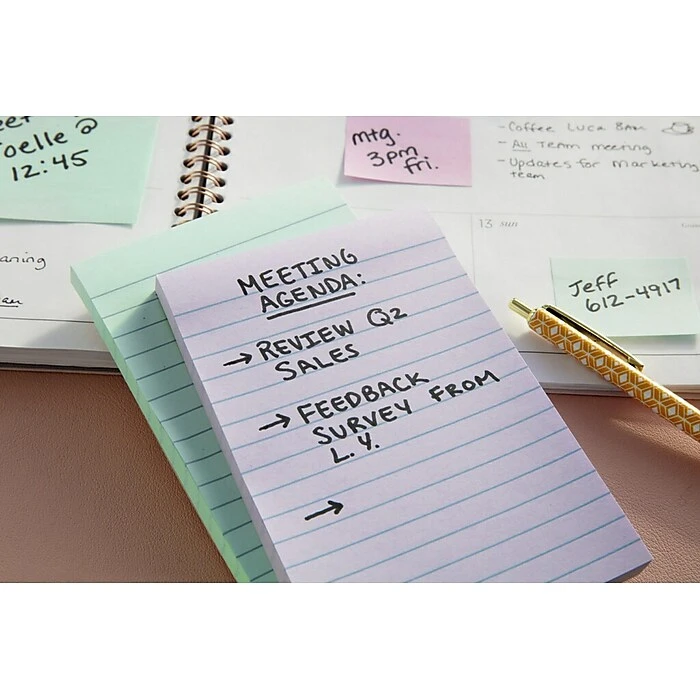 12:45
mtg.
3pm
fri.
-Coffee Luca 8am
-All Team meeting
-Updates for marketing
team
13 sun
Jeff
612-4917
MEETING
AGENDA:
→ REVIEW Q2
SALES
→ FEEDBACK
SURVEY FROM
L.Y.
→